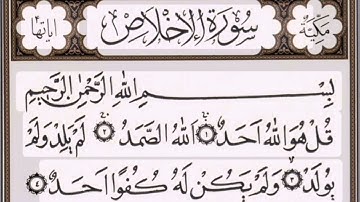 مكية سورة الإخلاص آياتها ٤
بِسْمِ اللهِ الرَّحْمٰنِ الرَّحِيمِ
قُلْ هُوَ اللهُ أَحَدٌ ١ اللهُ الصَّمَدُ ٢ لَمْ يَلِدْ وَلَمْ
يُولَدْ ٣ وَلَمْ يَكُنْ لَهُ كُفُوًا أَحَدٌ ٤